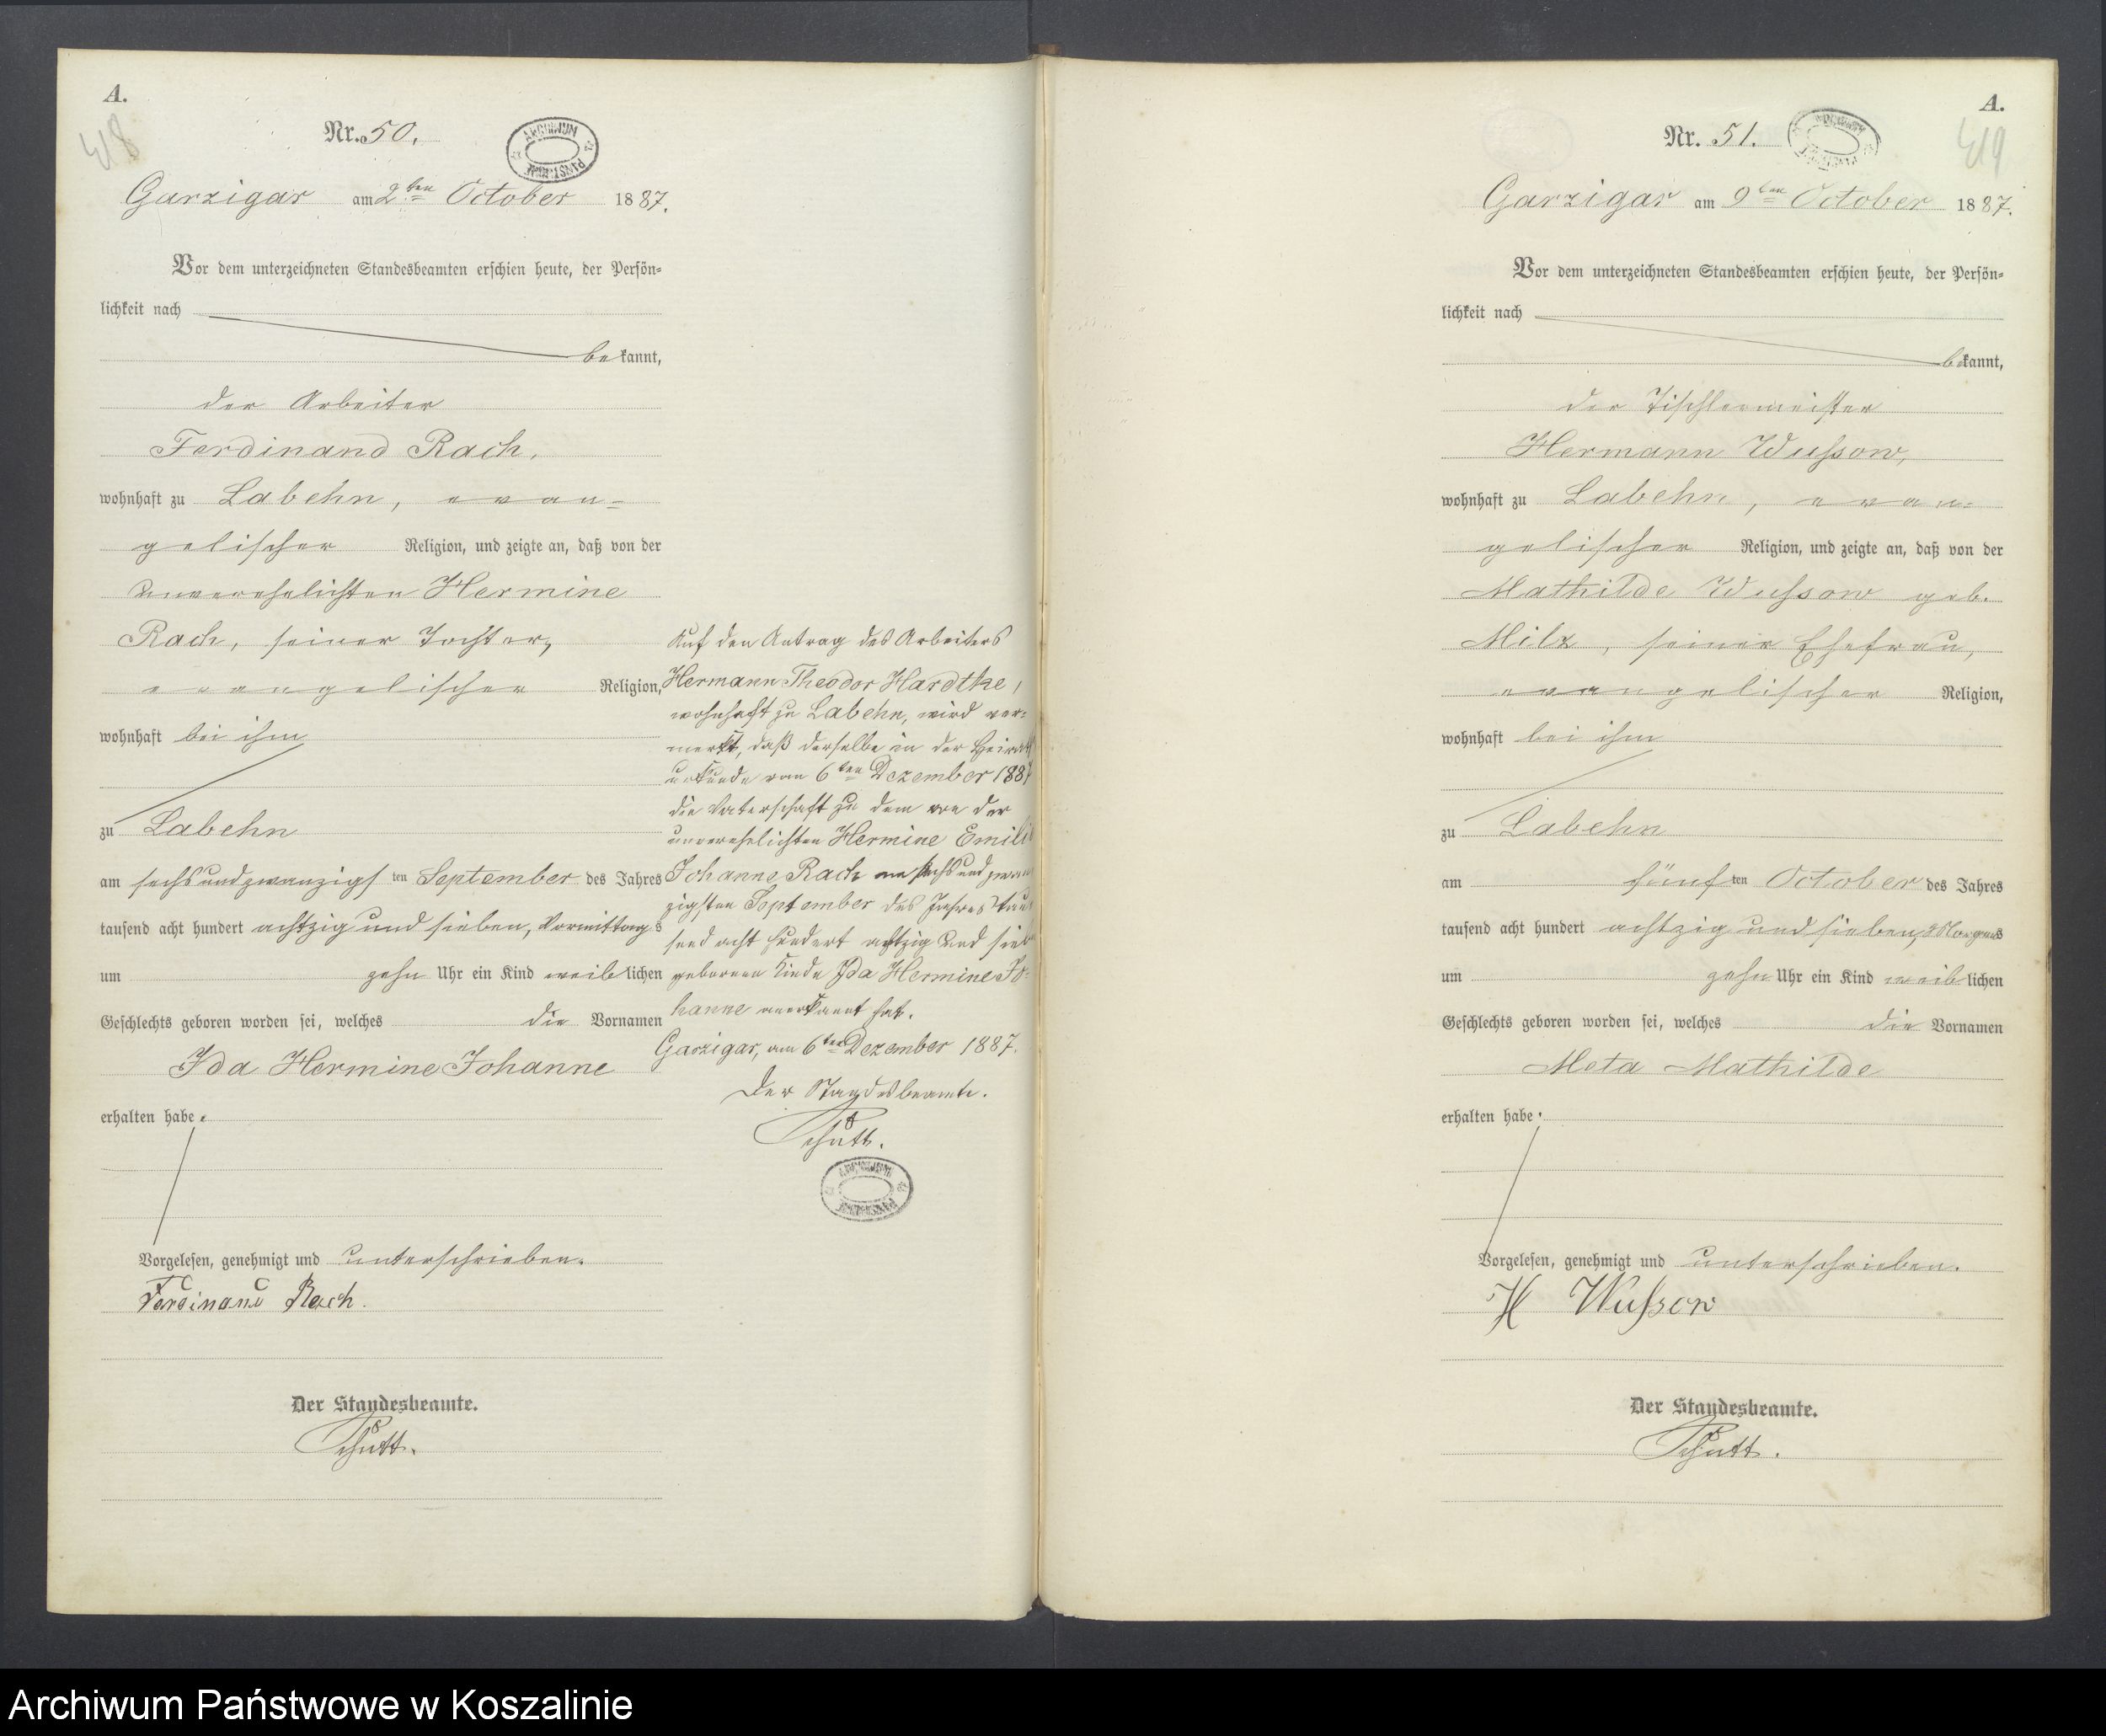 A.
418
Nr. 50.
ARCHIWUM PAŃSTWOWE
Garzigar am 2ten October 1887.
Vor dem unterzeichneten Standesbeamten erschien heute, der Persön-
lichkeit nach
bekannt,
der Arbeiter
Ferdinand Rach,
wohnhaft zu Labehn, evan-
gelischer Religion, und zeigte an, daß von der
unverehelichten Hermine
Rach, seiner Tochter,
evangelischer Religion,
wohnhaft bei ihm
zu Labehn
am sechsundzwanzigsten September des Jahres
tausend acht hundert achtzig und sieben, Vormittags
um zehn Uhr ein Kind weiblichen
Geschlechts geboren worden sei, welches die Vornamen
Ida Hermine Johanne
erhalten habe.
Vorgelesen, genehmigt und unterschrieben.
Ferdinand Rach.
Der Standesbeamte.
Schutt.
Auf den Antrag des Arbeiters
Hermann Theodor Hardtke,
wohnhaft zu Labehn, wird ver-
merkt, daß derselbe in der Heirats
urkunde vom 6ten Dezember 1887
die Vaterschaft zu dem von der
unverehelichten Hermine Emilie
Johanne Rach am sechsundzwan
zigsten September des Jahres tau
send acht hundert achtzig und sieben
geborenen Kinde Ida Hermine Jo-
hanne anerkannt hat.
Garzigar, am 6ten Dezember 1887.
Der Standesbeamte.
Schutt.
ARCHIWUM PAŃSTWOWE
A.
419
Nr. 51.
ARCHIWUM PAŃSTWOWE
Garzigar am 9ten October 1887.
Vor dem unterzeichneten Standesbeamten erschien heute, der Persön-
lichkeit nach
bekannt,
der Tischlermeister
Hermann Wussow,
wohnhaft zu Labehn, evan-
gelischer Religion, und zeigte an, daß von der
Mathilde Wussow geb.
Milz, seiner Ehefrau,
evangelischer Religion,
wohnhaft bei ihm
zu Labehn
am fünften October des Jahres
tausend acht hundert achtzig und sieben, Morgens
um zehn Uhr ein Kind weiblichen
Geschlechts geboren worden sei, welches die Vornamen
Meta Mathilde
erhalten habe.
Vorgelesen, genehmigt und unterschrieben.
H Wussow
Der Standesbeamte.
Schutt.
Archiwum Państwowe w Koszalinie